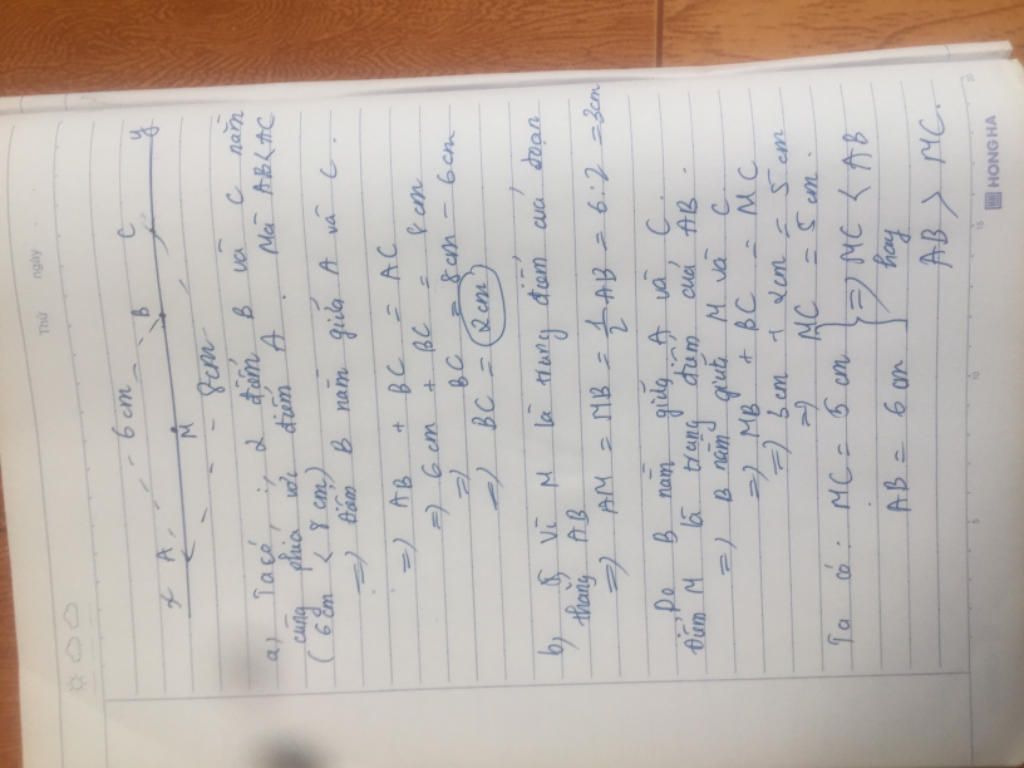 Thứ ngày
6 cm
x A M B C y
8cm
a) Ta có: 2 điểm B và C nằm
cùng phía với điểm A. Mà AB < AC
(6 cm < 8 cm)
=) Điểm B nằm giữa A và C.
=) AB + BC = AC
=) 6 cm + BC = 8 cm
=) BC = 8cm - 6cm
=) BC = 2cm
b) Vì M là trung điểm của đoạn
thẳng AB
=) AM = MB = 1/2 AB = 6 : 2 = 3cm
Do B nằm giữa A và C.
Điểm M là trung điểm của AB.
=) B nằm giữa M và C
=) MB + BC = MC
=) 3cm + 2cm = 5cm
=) MC = 5cm.
Ta có: MC = 5 cm } =) MC < AB
AB = 6 cm hay
AB > MC.
HONG HA
5 10 15 20